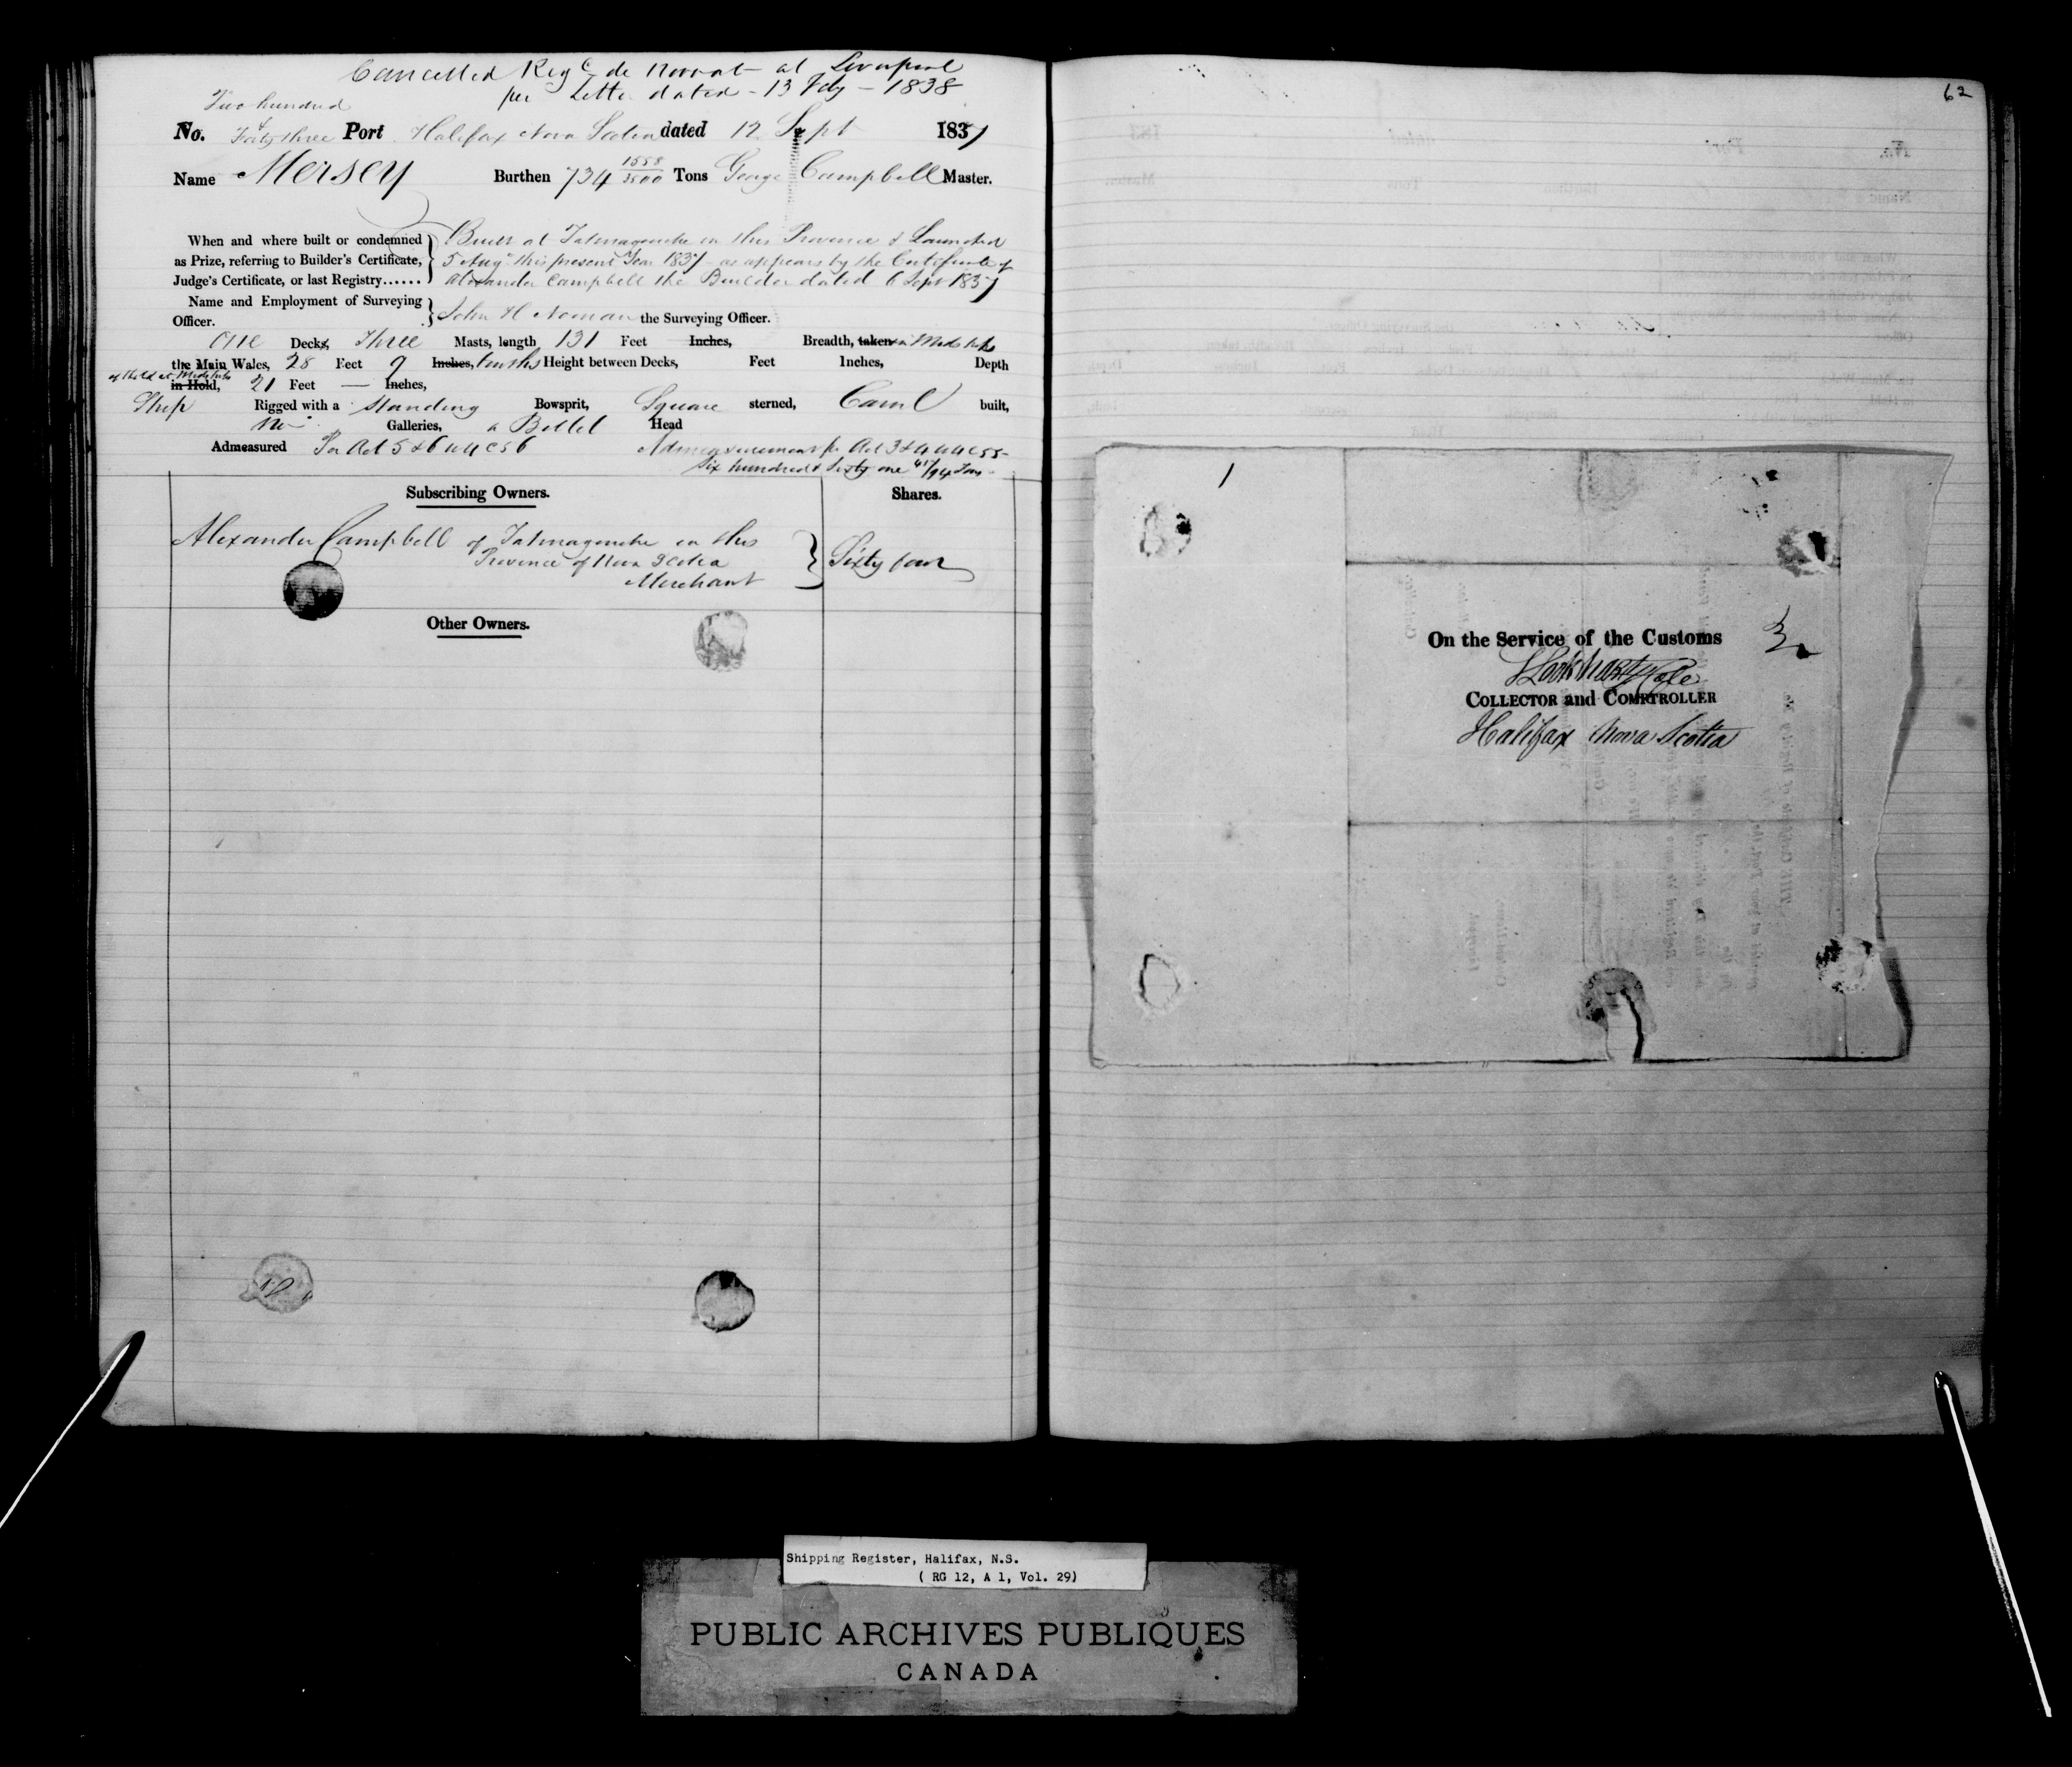 Cancelled Reg de Novo at Liverpool
per Letter dated - 13 Feby - 1838
Two hundred
&
No. Forty three Port Halifax Nova Scotia dated 12 Sept 1837
Name Mersey Burthen 734 1558/3500 Tons George Campbell Master.
When and where built or condemned
as Prize, referring to Builder's Certificate,
Judge's Certificate, or last Registry......
Built at Tatmagouche in this Province & Launched
5 Augt this present Year 1837 - as appears by the Certificate of
Alexander Campbell the Builder dated 6 Sept 1837
Name and Employment of Surveying
Officer.
John H Noonan the Surveying Officer.
One Decks, Three Masts, length 131 Feet Inches, Breadth, taken in Midships
the Main Wales, 28 Feet 9 Inches, tenths Height between Decks, Feet Inches, Depth
of Hold at Midships
in Hold, 21 Feet — Inches,
Ship Rigged with a Standing Bowsprit, Square sterned, Carvl built,
No Galleries, a Billet Head
Admeasured Per Act 5 & 6 W 4 C 56 Admeasurement pr Act 3 & 4 W 4 C 55 -
Six hundred & Sixty one 41/94 Tons -
Subscribing Owners. Shares.
Alexander Campbell of Tatmagouche in this
Province of Nova Scotia
Merchant
Sixty four
Other Owners.
62
1
On the Service of the Customs
COLLECTOR and COMPTROLLER
Halifax Nova Scotia
Shipping Register, Halifax, N.S.
( RG 12, A 1, Vol. 29)
PUBLIC ARCHIVES PUBLIQUES
CANADA